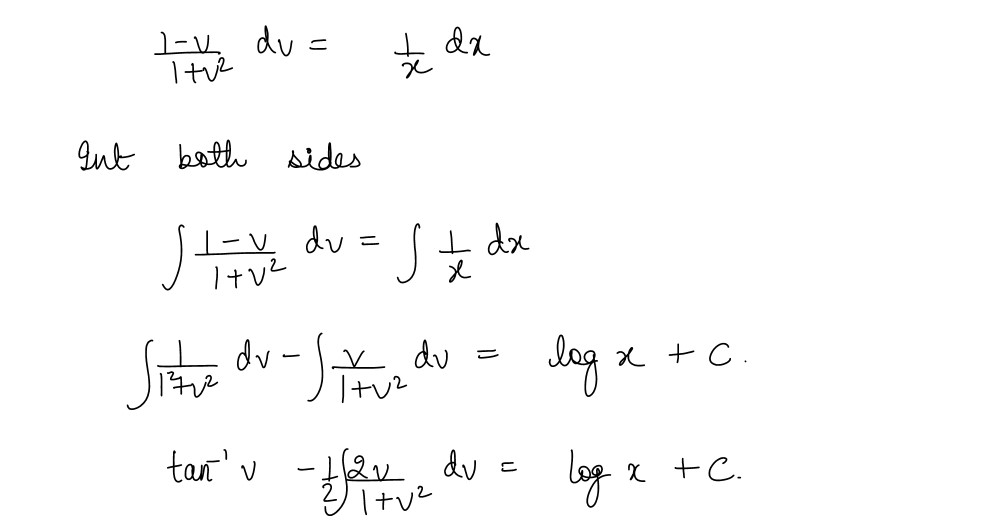 $\frac{1-v}{1+v^2} dv = \frac{1}{x} dx$
Int both sides
$\int \frac{1-v}{1+v^2} dv = \int \frac{1}{x} dx$
$\int \frac{1}{1^2+v^2} dv - \int \frac{v}{1+v^2} dv = \log x + C.$
$\tan^{-1} v - \frac{1}{2} \int \frac{2v}{1+v^2} dv = \log x + C.$